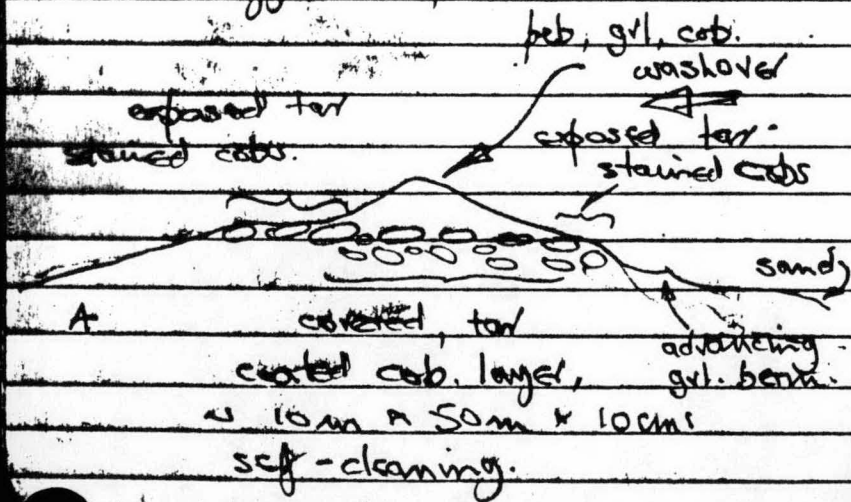 peb, grl, cob.
washover
exposed tar
stained cobs.
exposed tar
stained cobs
sand
A
covered, tar
coated cob. layer,
~ 10m x 50m x 10cm
self-cleaning.
advancing
grl. berm.